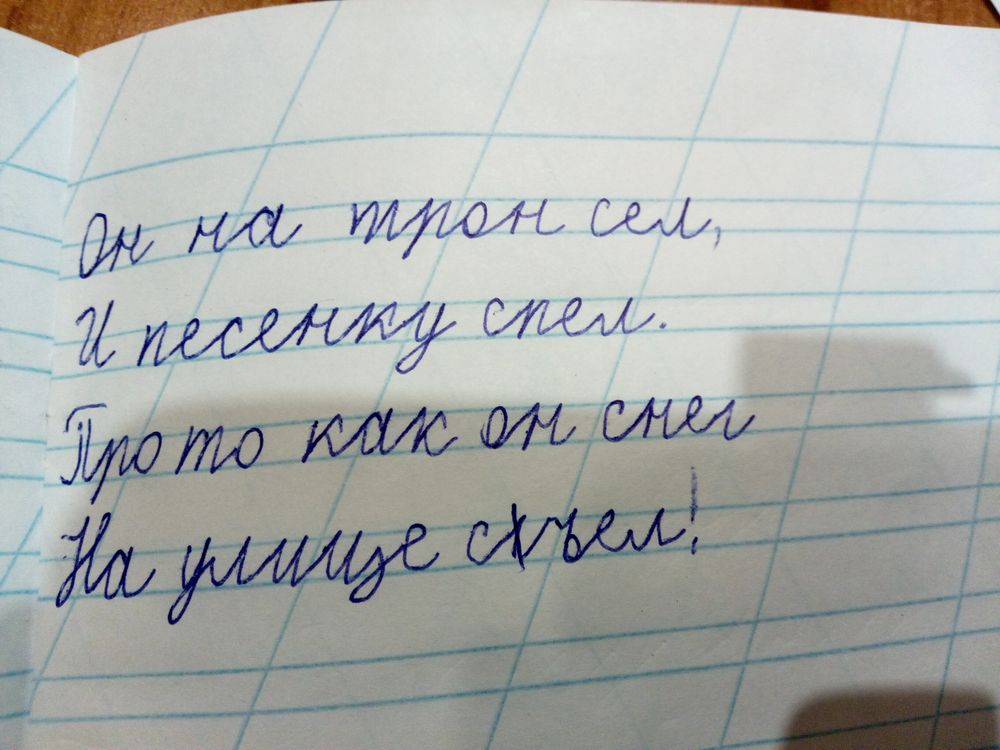 Он на трон сел,
И песенку спел.
Про то как он снег
На улице съел!